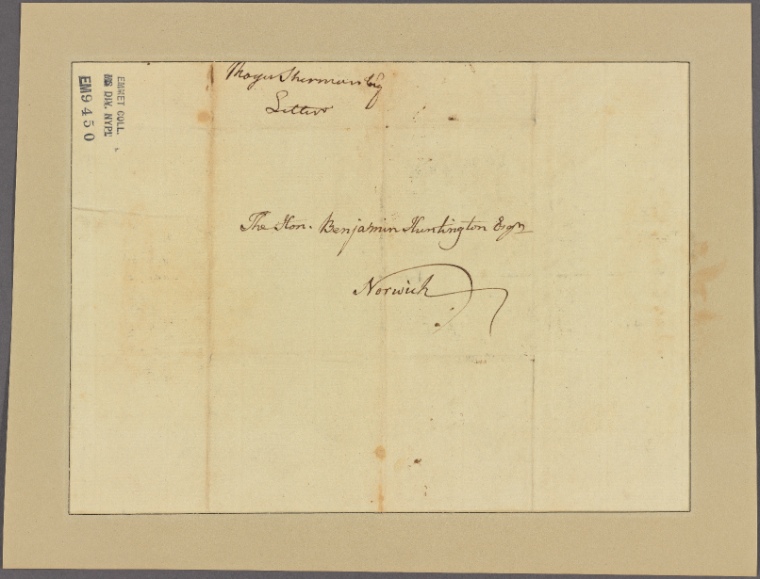 Roger Sherman Esq
Letter
The Hon. Benjamin Huntington Esqr
Norwich
EMMET COLL.
MS DIV. NYPL
EM9450